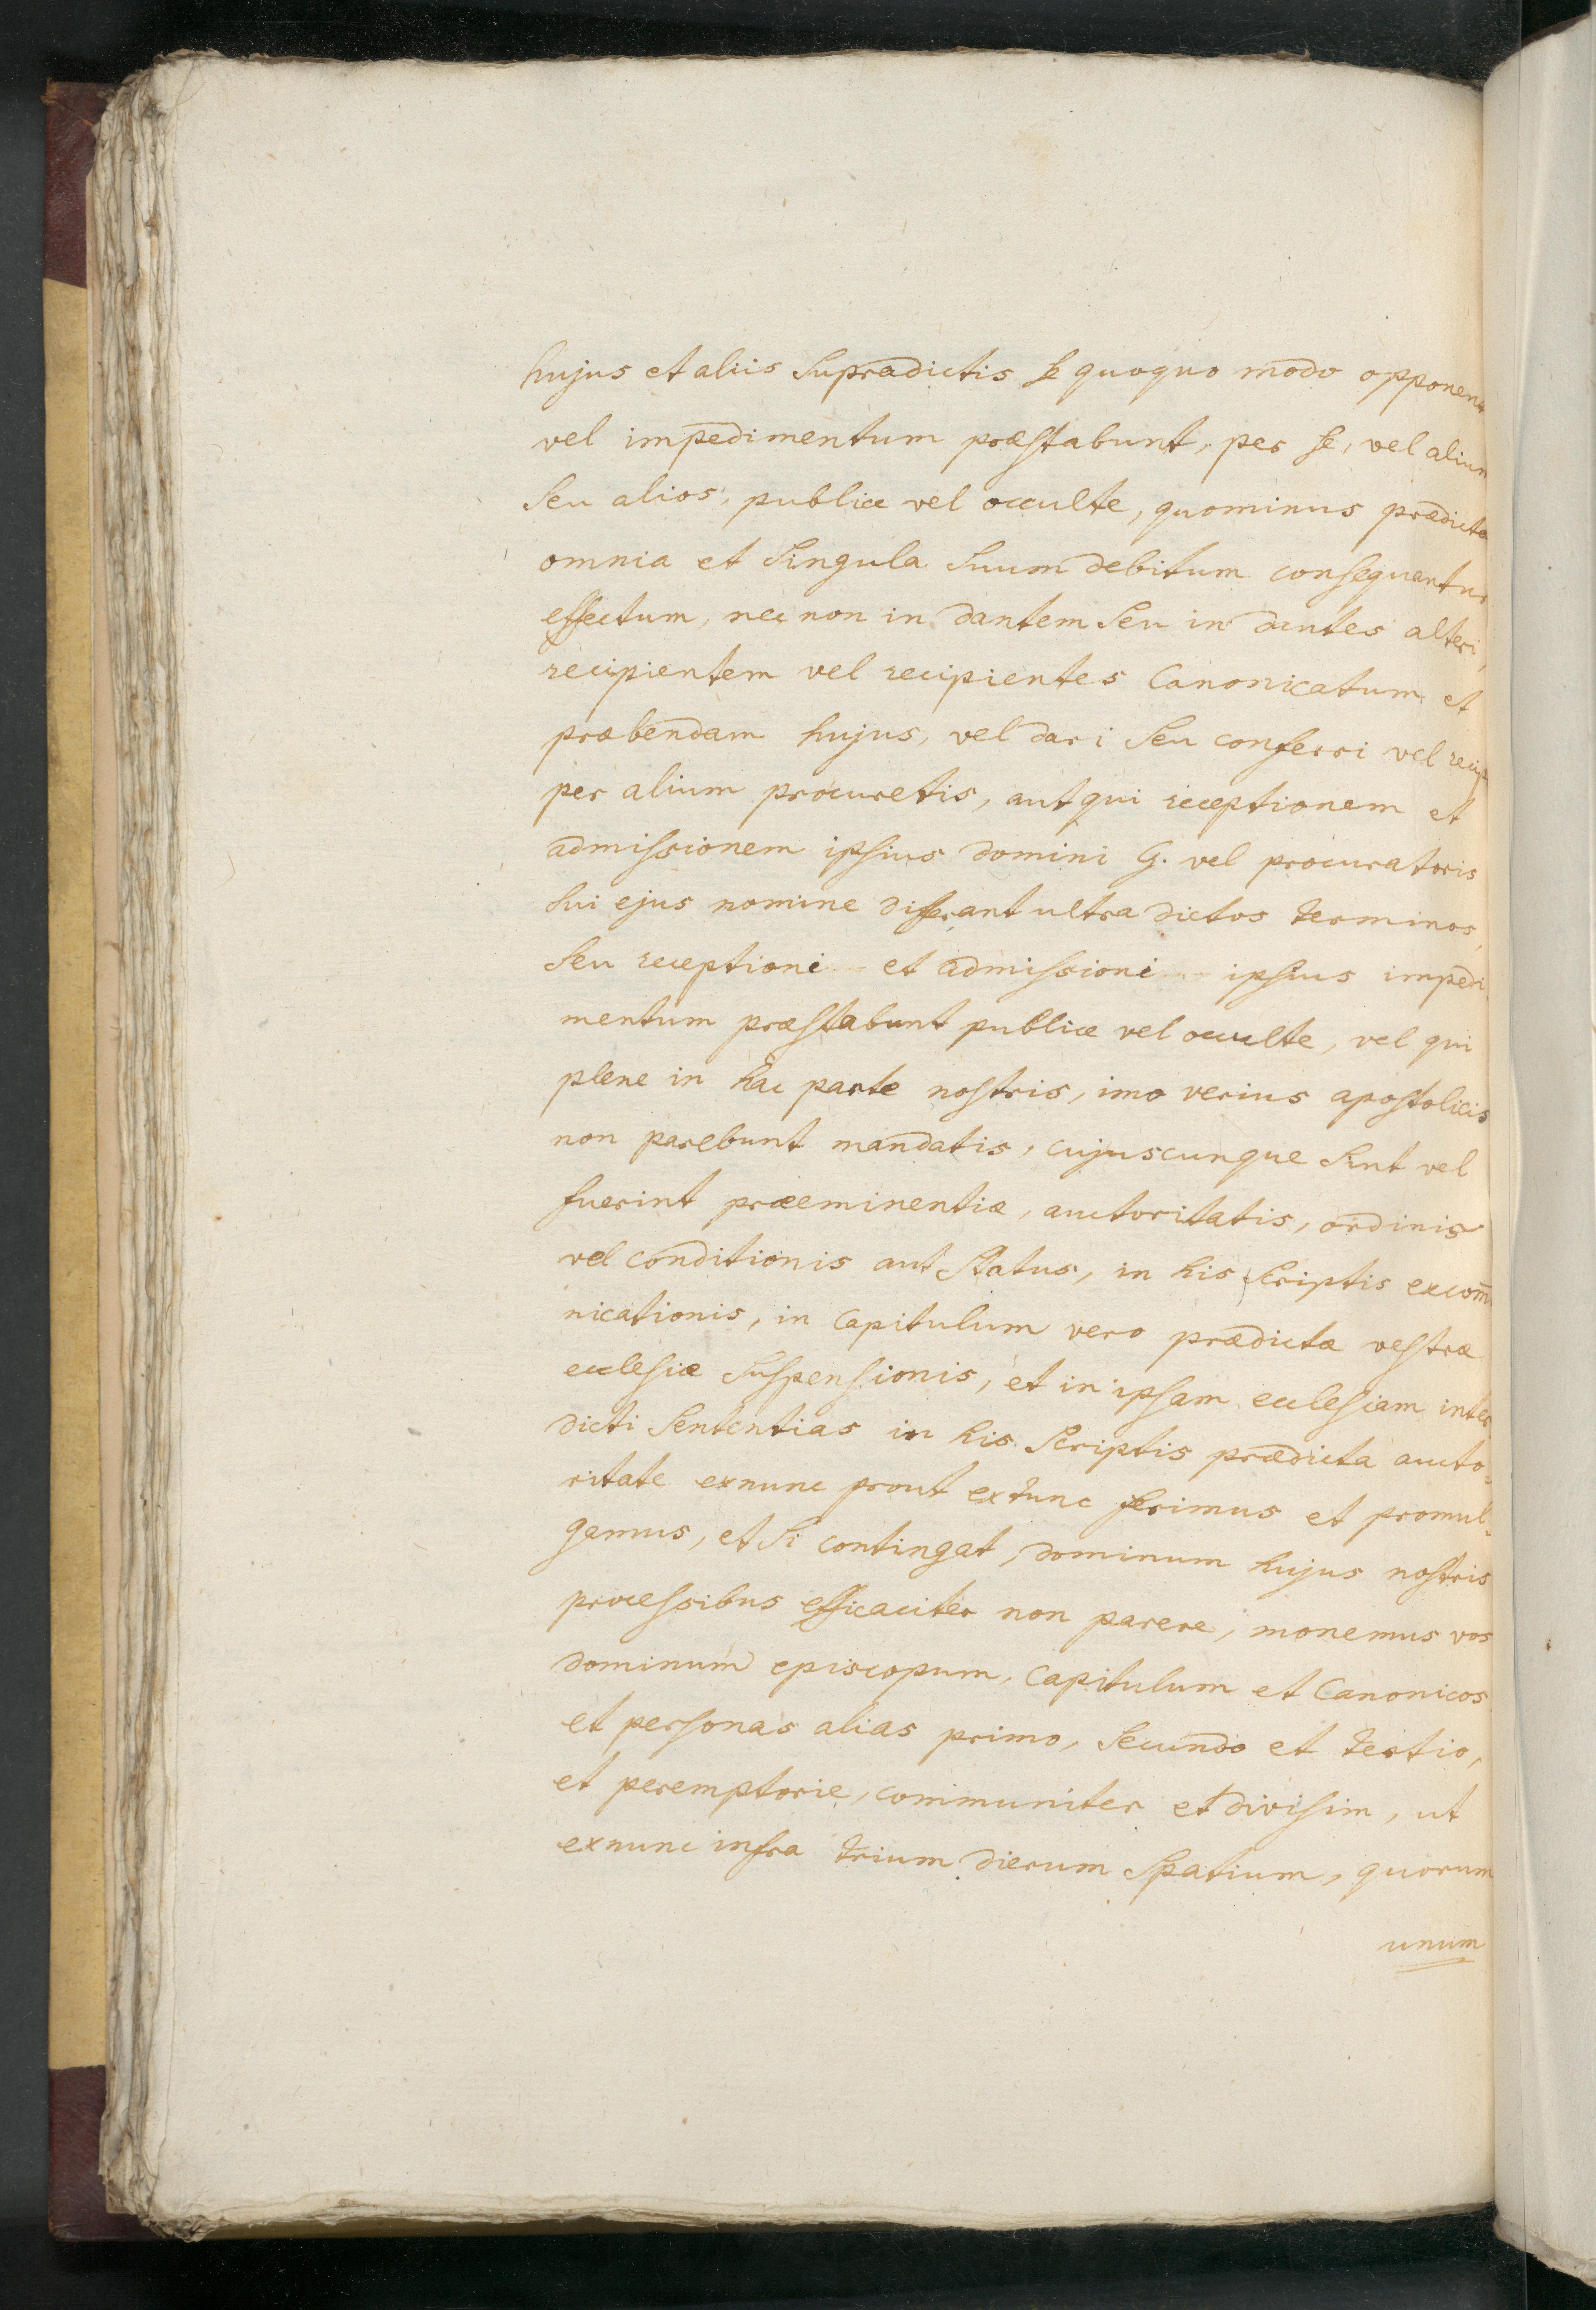 hujus et aliis supradictis se quoquo modo opponent
vel impedimentum præstabunt, per se, vel alium
seu alios, publice vel occulte, quominus prædicta
omnia et singula suum debitum consequantur
effectum, nec non in dantem seu in dantes alteri,
recipientem vel recipientes Canonicatum et
præbendam hujus, vel dari seu conferri vel recip
per alium procuretis, aut qui receptionem et
admissionem ipsius domini G. vel procuratoris
sui ejus nomine differant ultra dictos terminos,
seu receptioni et admissioni ipsius impedi-
mentum præstabunt publice vel occulte, vel qui
plene in hac parte nostris, imo verius apostolicis
non parebunt mandatis, cujuscunque sint vel
fuerint præeminentiæ, auctoritatis, ordinis
vel conditionis aut status, in his scriptis excom̄
nicationis, in capitulum vero prædictæ vestræ
ecclesiæ suspensionis, et in ipsam ecclesiam inter
dicti sententias in his scriptis prædicta aucto-
ritate exnunc prout extunc ferimus et promul-
gamus, et si contingat, dominum hujus nostris
processibus efficaciter non parere, monemus vos
dominum episcopum, capitulum et Canonicos
et personas alias primo, secundo et tertio,
et peremptorie, communiter et divisim, ut
exnunc infra trium dierum spatium, quorum
unum